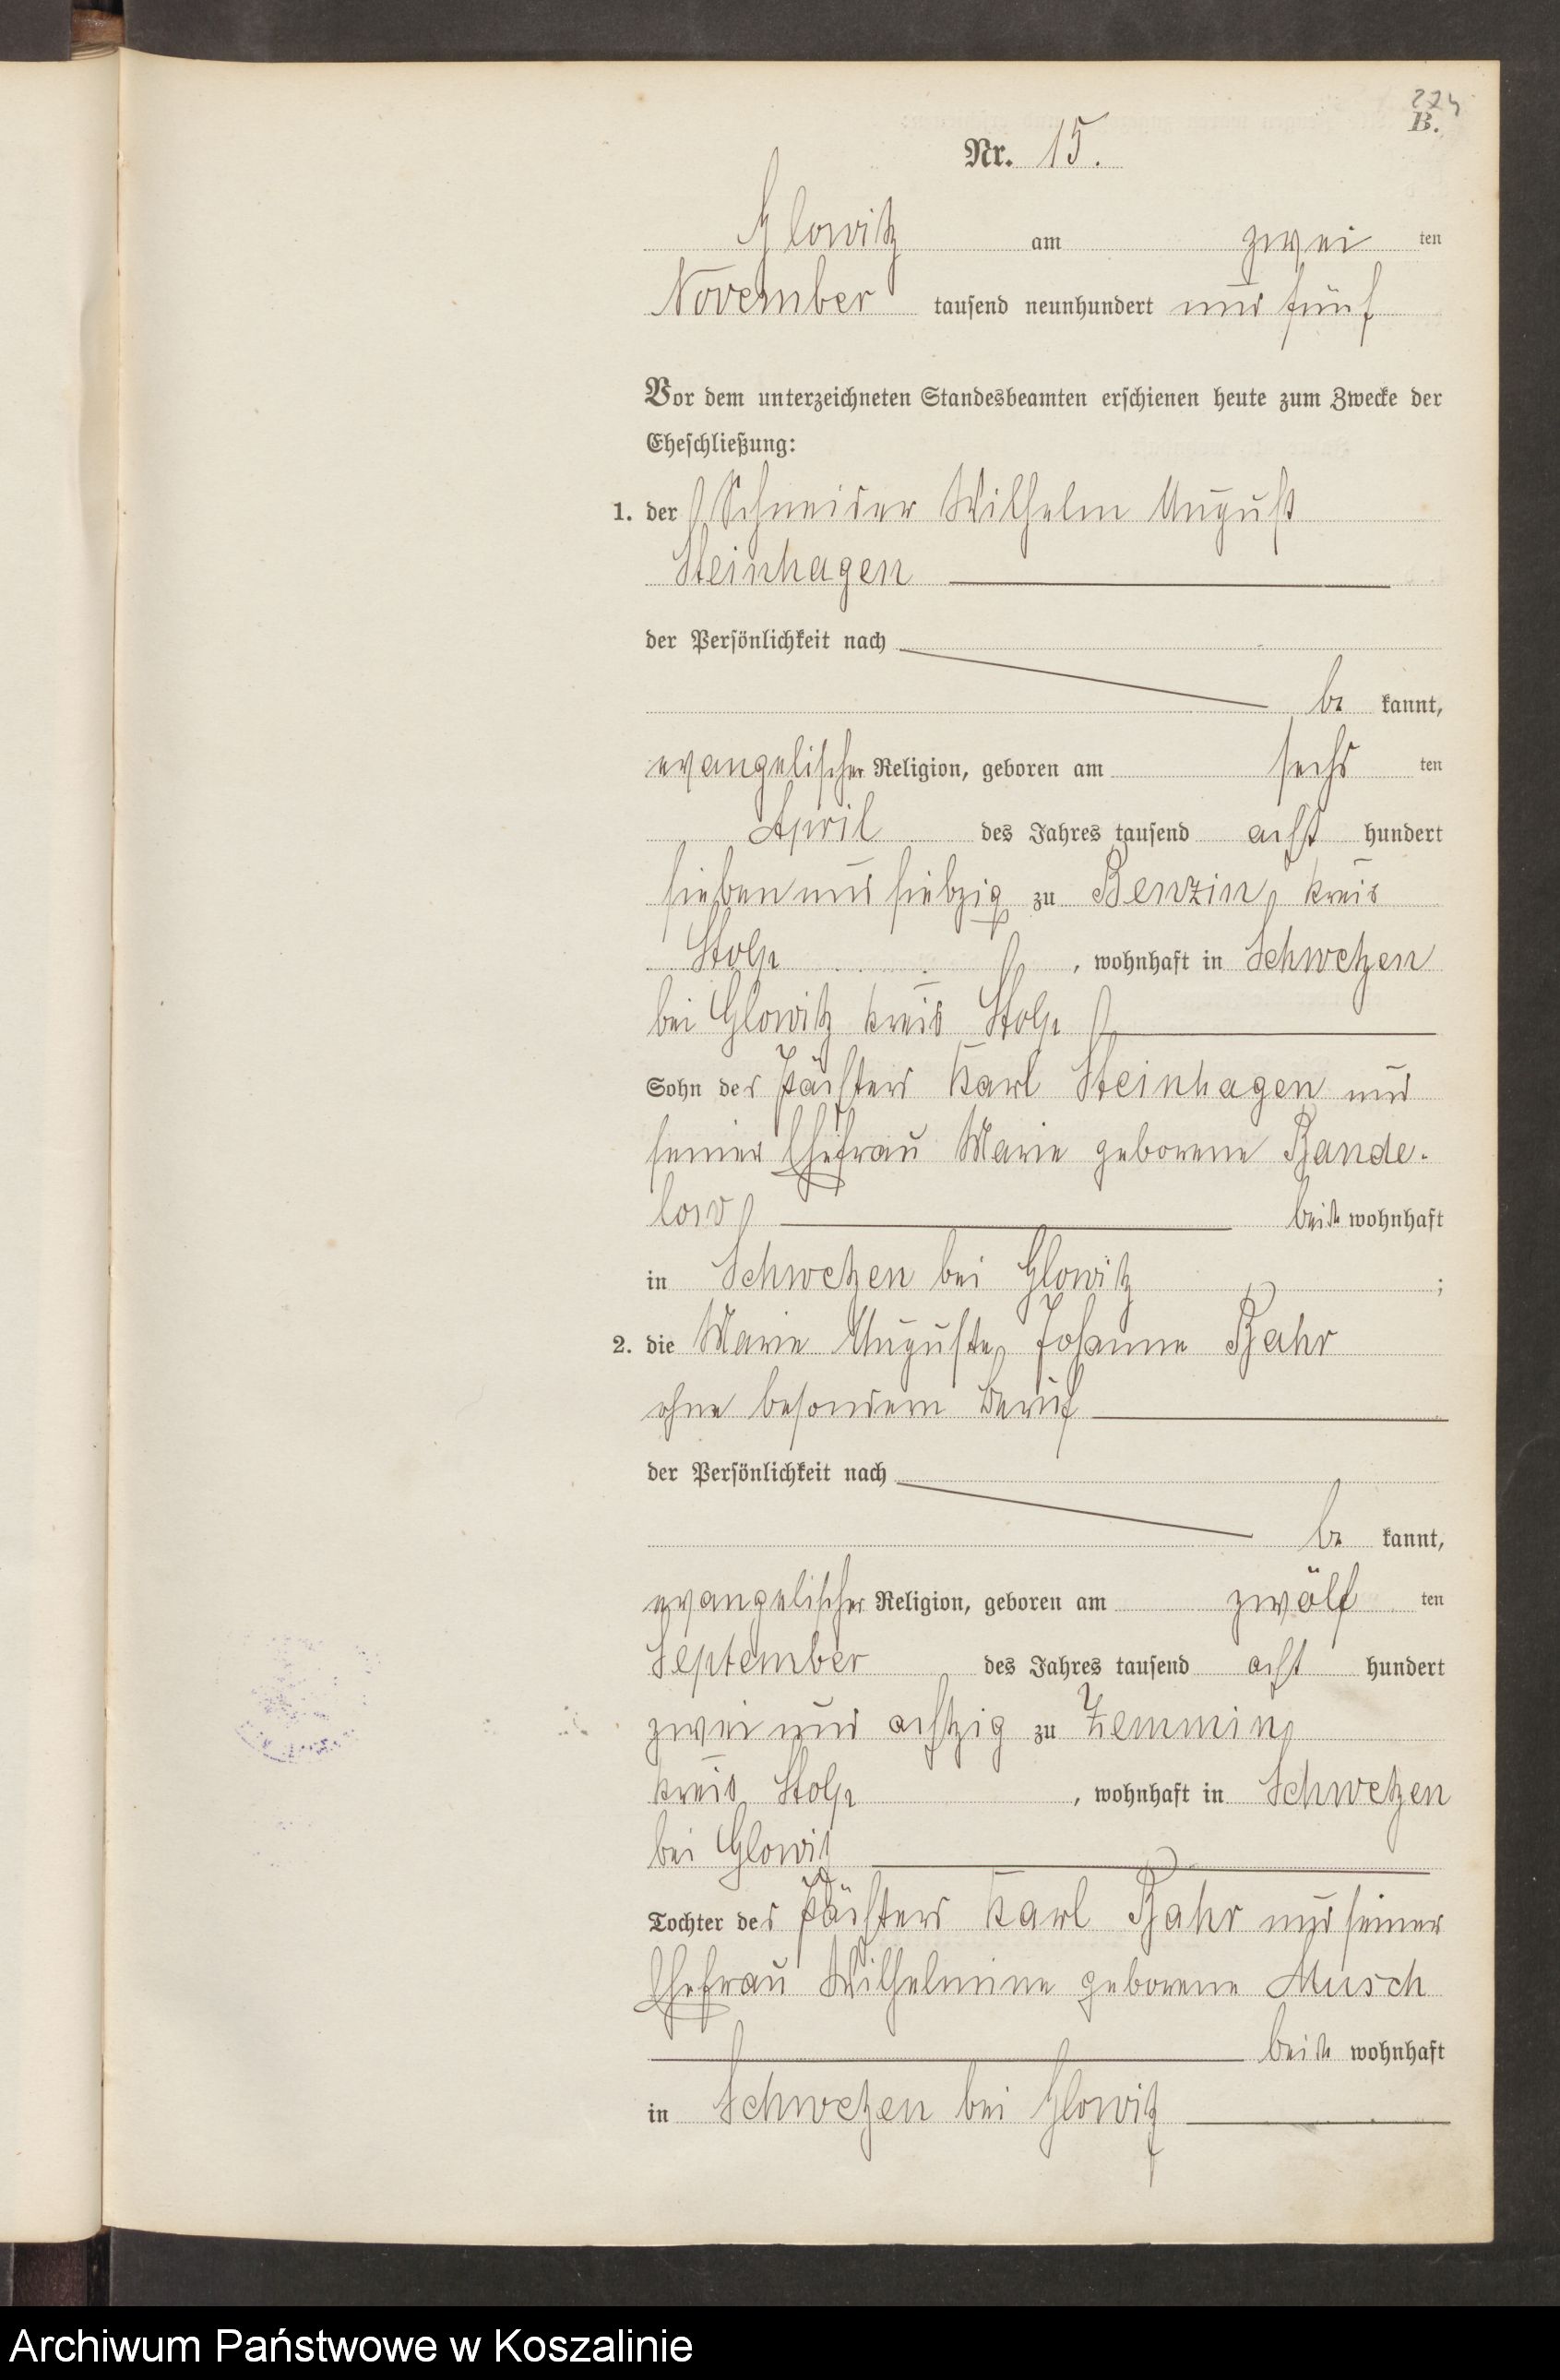 274
B.
Nr. 15.
Glowitz am zwei ten
November tausend neunhundert und fünf
Vor dem unterzeichneten Standesbeamten erschienen heute zum Zwecke der
Eheschließung:
1. der Schneider Wilhelm August
Steinhagen
der Persönlichkeit nach
be kannt,
evangelischer Religion, geboren am sechs ten
April des Jahres tausend acht hundert
sieben und siebzig zu Benzin, Kreis
Stolp , wohnhaft in Schwetzen
bei Glowitz Kreis Stolp
Sohn des Pächters Karl Steinhagen und
seiner Ehefrau Marie geborene Bande-
low beide wohnhaft
in Schwetzen bei Glowitz ;
2. die Marie Auguste Johanne Bahr
ohne besondern Beruf
der Persönlichkeit nach
be kannt,
evangelischer Religion, geboren am zwölf ten
September des Jahres tausend acht hundert
zwei und achtzig zu Zemmin,
Kreis Stolp , wohnhaft in Schwetzen
bei Glowitz
Tochter des Pächters Karl Bahr und seiner
Ehefrau Wilhelmine geborene Musch
beide wohnhaft
in Schwetzen bei Glowitz
Archiwum Państwowe w Koszalinie